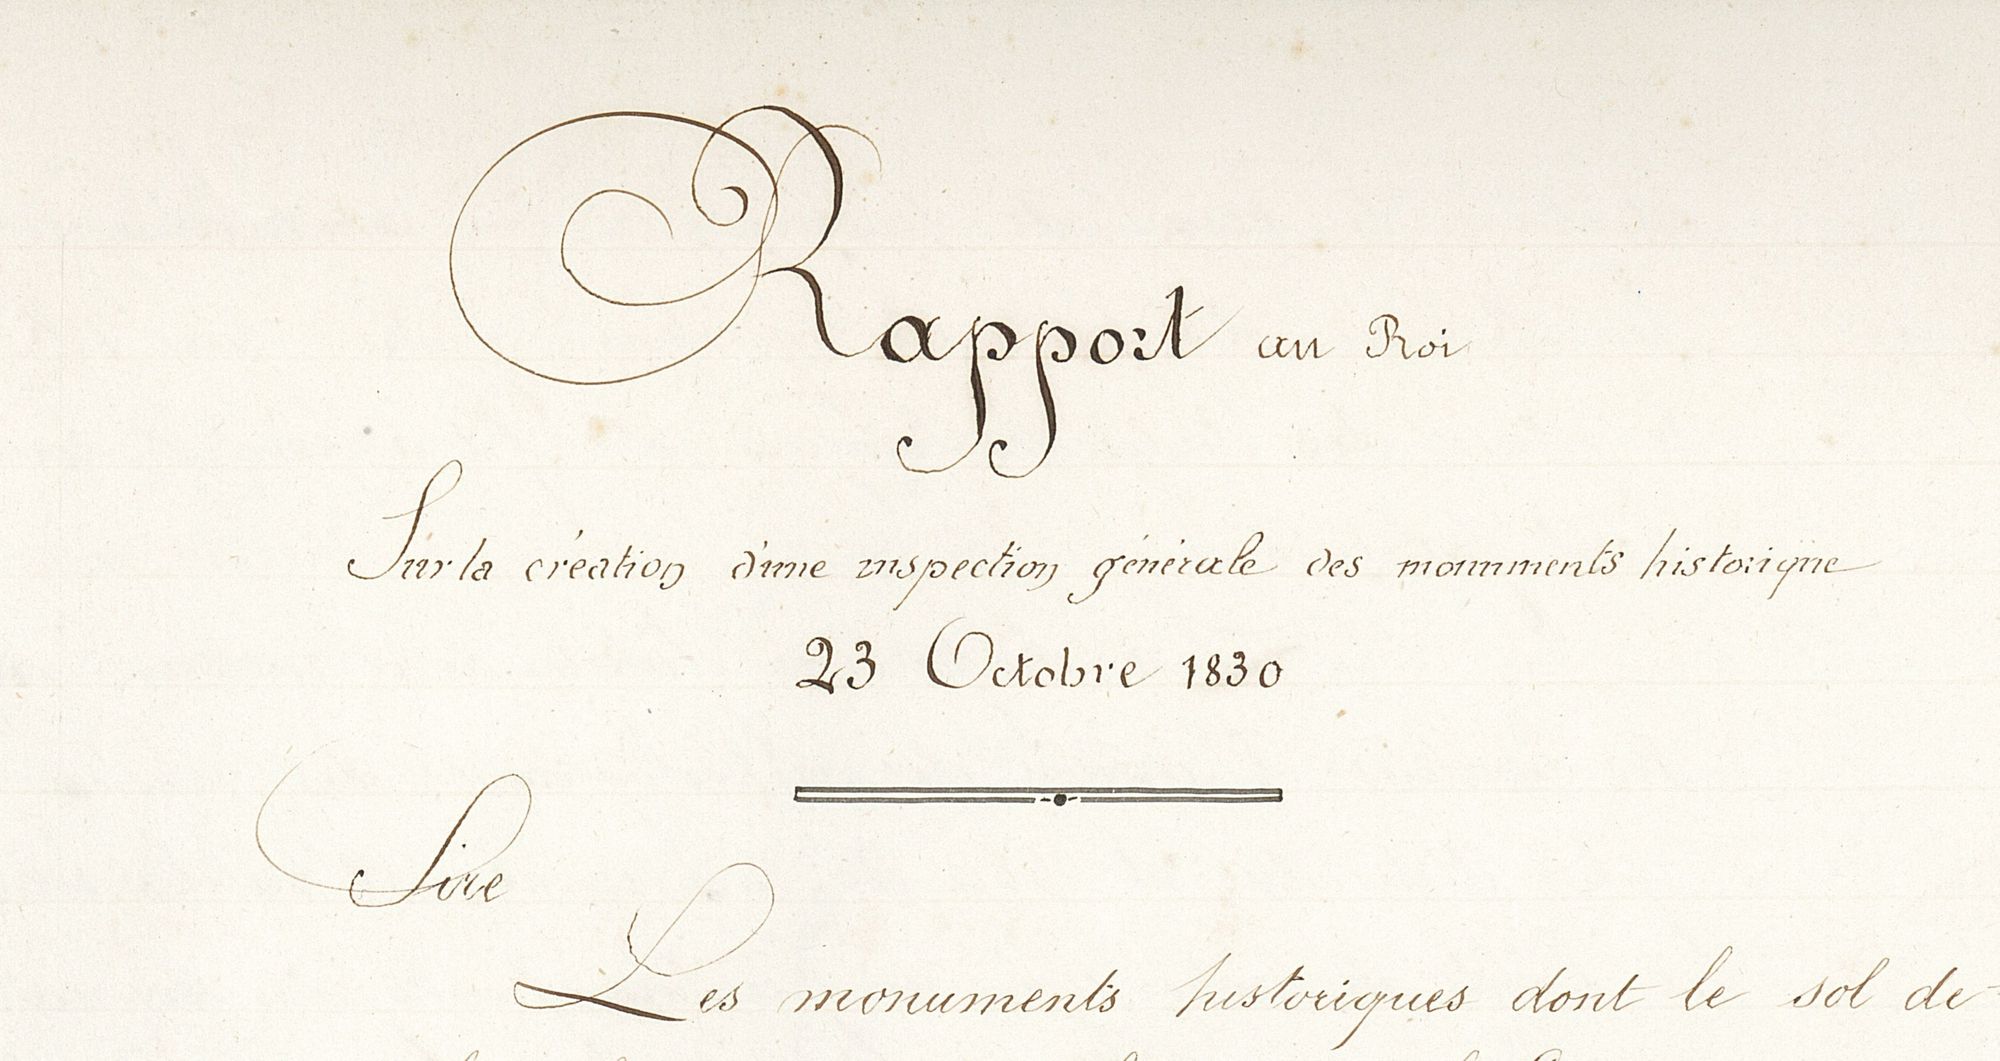 Rapport au Roi
Sur la création d'une inspection générale des monuments historique
23 Octobre 1830
Sire
Les monuments historiques dont le sol de-